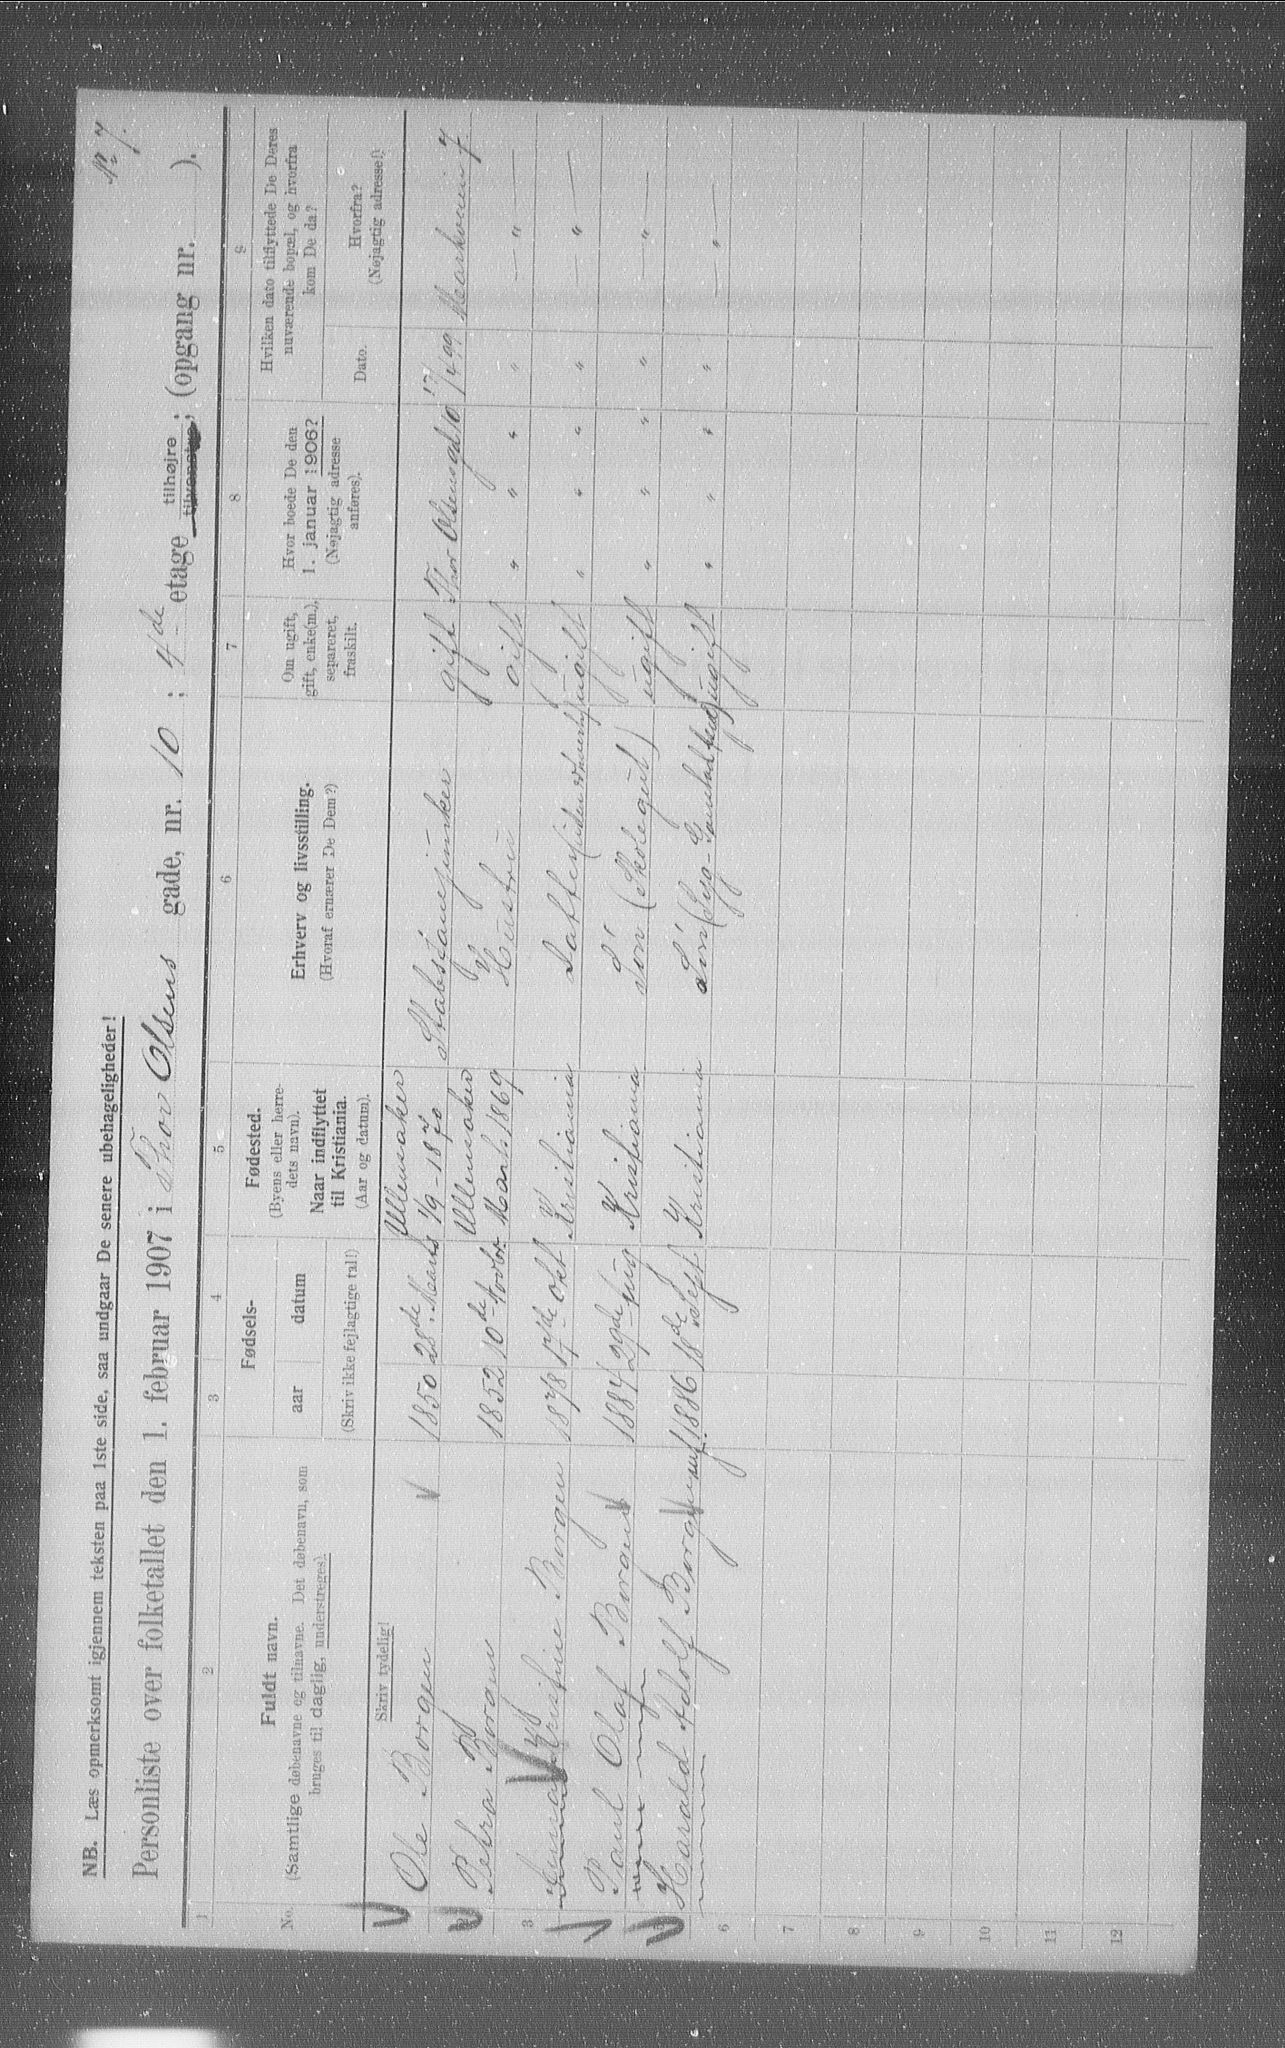 No 7.
NB. Læs opmerksomt igjennem teksten paa 1ste side, saa undgaar De senere ubehageligheder!
Personliste over folketallet den 1. februar 1907 i Thor Olsens gade, nr. 10 ; 4de etage tilhøjre tilvenstre; (opgang nr. ).
1 2 3 4 5 6 7 8 9
No. Fuldt navn.
(Samtlige døbenavne og tilnavne. Det døbenavn, som
bruges til daglig, understreges).
Skriv tydelig!
Fødsels-
aar datum
(Skriv ikke fejlagtige tal!)
Fødested.
(Byens eller herre-
dets navn).
Naar indflyttet
til Kristiania.
(Aar og datum).
Erhverv og livsstilling.
(Hvoraf ernærer De Dem?)
Om ugift,
gift, enke(m.),
separeret,
fraskilt.
Hvor boede De den
1. januar 1906?
(Nøjagtig adresse
anføres).
Hvilken dato tilflyttede De Deres
nuværende bopæl, og hvorfra
kom De da?
Dato.
Hvorfra?
(Nøjagtig adresse!)
Ole Borgen 1850 28de Marts Ullensaker 1/9-1870 Stabsfanejunker gift Thor Olsens gd 10 17/4 99 Markveien 7
2 Petra Borgen 1852 10de Novbr. Ullensaker Marts 1869 Hustru gift " " " " — " —
3 Kristine Borgen 1878 17de Okt Kristiania Datter ugift " " " " — " —
Paul Olaf Borgen 1884 29de Aug Kristiania Søn (Skolegut) ugift " " " " — " —
5 Harald Adolf Borgen 1886 18de Sept Kristiania Søn ugift " " " " — " —
6
7
8
9
10
11
12